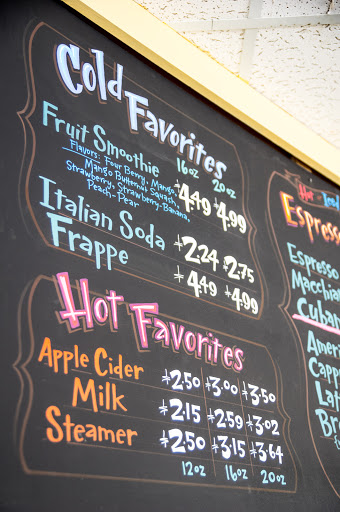 Cold Favorites
Fruit Smoothie 16oz 20oz
Flavors: Four Berry, Mango,
Mango Butternut Squash,
Strawberry, Strawberry-Banana,
Peach-Pear
$4.49 $4.99
Italian Soda $2.24 $2.75
Frappe $4.49 $4.99
Hot Favorites
Apple Cider $2.50 $3.00 $3.50
Milk $2.15 $2.59 $3.02
Steamer $2.50 $3.15 $3.64
12oz 16oz 20oz
Hot Iced
Espress
Espresso
Macchia
Cuban
Ameri
Capp
Lat
Br